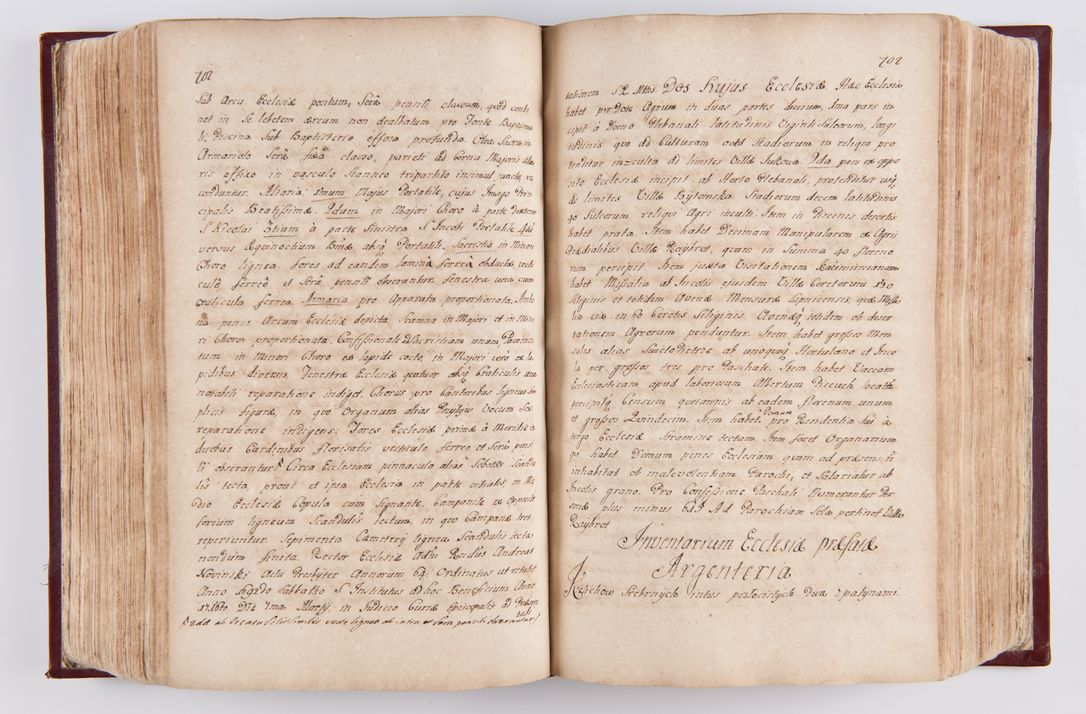 702
Sub Arcu Ecclesiæ positum, Serâ pensili clausum, quod conti
net in se lebetem æreum non dealbatum pro Fonte Baptisma
li; Piscina sub Baptisterio effossa profunda. Olea Sacra in
Armariolo Serâ fixâ clauso, parieti ad Cornu Majoris Alta
ris affixo in vasculo stanneo tripartito insimul juncto, re
conduntur. Altaria: imum Majus Portatile, cujus Imago Prin
cipalis Beatissimæ. 2dum in Majori Choro à parte dextera
S. Nicolai 3tium à parte Sinistra S. Jacobi Portatile 4tũ
versus Æquinoctium Bmæ absq Portatili. Sacrestia in Minori
Choro lignea, fores ad eandem laminâ ferreâ obductæ, vecti
culô ferreô et Serâ pensili obserantur, fenestra una cum
craticula ferrea. Armaria pro Apparatu proportionata. Ambo
na penes Arcum Ecclesiæ depicta, Scamna in Majori et in Mino
ri Choro proportionata. Confessionale ad Sacristiam unum, Pavimen
tum in Minori Choro ex lapide cocto, in Majori verò ex la
pidibus diversis. Fenestræ Ecclesiæ quatuor absq Craticulis una
notabili reparatione indiget. Chorus pro Cantoribus ligneus Sim
plicis figuræ, in quo Organum alias Pozytyw Vocum Sex
reparatione indigens. Fores Ecclesiæ primæ à Meridie in
duobus Cardinibus florisatis vecticulo ferreo et Serâ pensi
li obserantur. Circa Ecclesiam pinnacula alias Soboty Scandu
lis tecta, prout et ipsa Ecclesia in parte vitiatis in Me
dio Ecclesiæ Copula cum Signante. Campanile ex Opposito
forium ligneum Scandulis tectum, in quo Campanæ tres
reperiuntur. Sepimenta Cæmeterij lignea Scandulis tecta
nondum finita. Rector Ecclesiæ Adm Rndus Andreas
Nowinski Actu Presbyter Annorum 64. Ordinatus ut retulit
Anno Sabbatho S. Institutus ad hoc Beneficium Anno
Die 7ma Martij, in Judicio Curiæ Episcopalis ad Præsen
tati

702
tationem S R Mtis Dos Hujus Ecclesiæ Hæc Ecclesia
habet pro Dote Agrum in duas partes divisum, Ima pars in
cipit à Domo Plebanali latitudinis Viginti Sulcorum, longi
tudinis quo ad Culturam octo Stadiorum in reliquo pro
tenditur inculta ad limites Villæ Łukowa 2da pars ex oppo
sito Ecclesiæ incipit ab Horto Plebanali, protenditur usq
ad limites Villæ Bytomska Stadiorum decem latitudinis
40 Sulcorum reliqui Agri inculti. Item in Piscinis desertis
habet prata. Item habet Decimam Manipularem ex Agris
Prædialibus Villæ Raybrot, quam in Summa 40 floreno
rum percipit. Item juxta Visitationem Kazimirscianam
habet Missalia ab Incolis ejusdem Villæ Coretorum 
Siliginis et totidem Avenæ Mensuræ Lipnicensis, quæ Missa
lia vix in 60 Coretis Siliginis Avenæq totidem ob deser
tationem Agrorum penduntur. Item habet grossos Men
sales alias Swiętopietrze ab unoquoq Hortulano et Inco
la per grossos tres pro Paschate. Item habet Vaccam
Ecclesiasticam apud laboriosum Albertum locatã
percipitq Censum quotannis ab eadem florenum unum
et grossos Quindecim. Item habet Domum pro Residentia Sui à
tergo Ecclesiæ Stramine tectam. Item fovet Organarium
qui habet Domum penes Ecclesiam quam ad præsens nõ
inhabitat ob malevolentiam Parochi, et Salariatur ab
Incolis grano. Pro Confessione Paschali Numerantur Per
sonæ plus minus Ad Parochiam Sola pertinet Villa
Raybrot
Inventarium Ecclesiæ præfatæ
Argenteria
Kielichow Srebrnych intus pozłocistych Dwa z patynami.